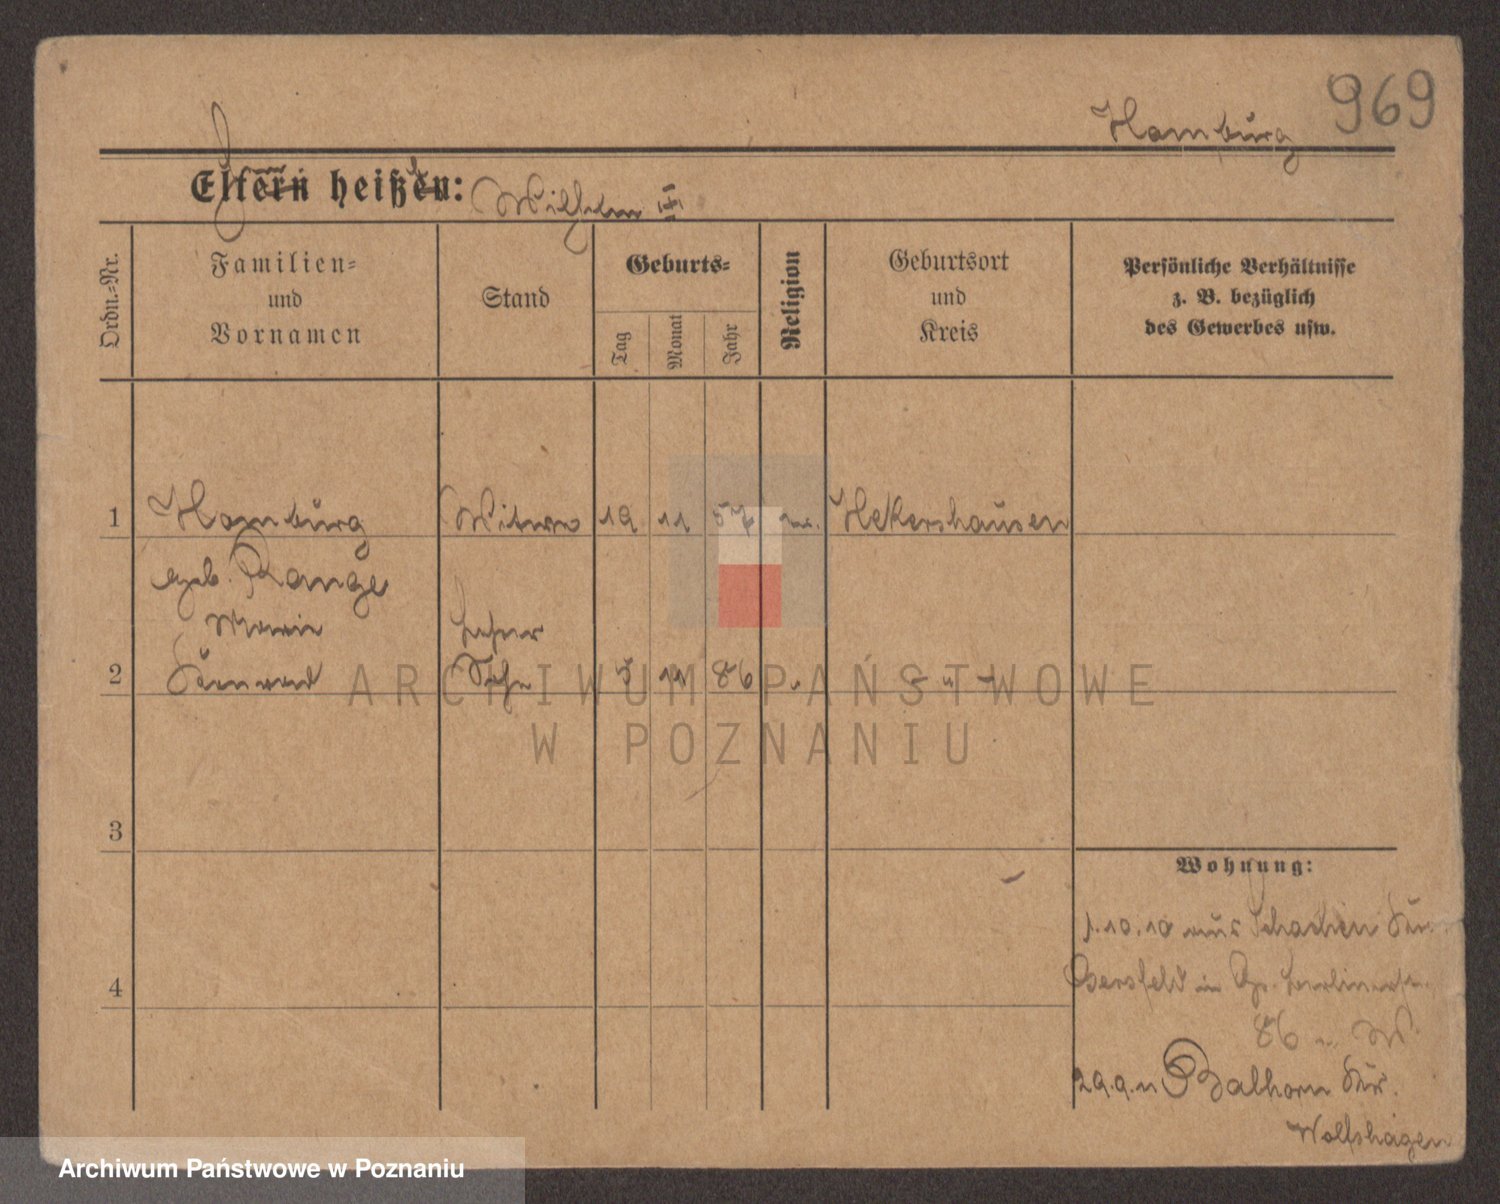 969
Hamburg
Eltern heißen: Wilhelm III
Ordn.-Nr.
Familien-
und
Vornamen
Stand
Geburts-
Tag
Monat
Jahr
Religion
Geburtsort
und
Kreis
Persönliche Verhältnisse
z. B. bezüglich
des Gewerbes usw.
1 Hamburg Witwe 19 11 57 Hekershausen
geb. Range
Marie
2 Konrad Sohn 5 11 86 - " -
ARCHIWUM PAŃSTWOWE
W POZNANIU
3
Wohnung:
1.10.10 aus Schachten Kr.
4
in
86 W
29.9.11 Balhorn Krs.
Wolfshagen
Archiwum Państwowe w Poznaniu